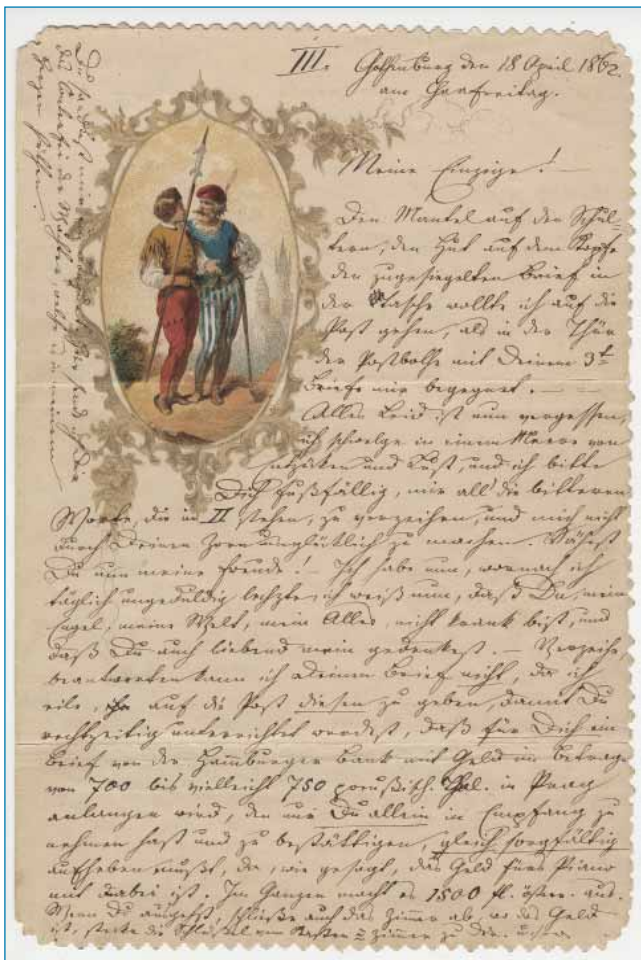 III. Gothenburg den 18 April 1862.
am Charfreitag.
Meine Einzige! —
Den Mantel auf den Schul-
tern, den Hut auf dem Kopfe
den zugesiegelten Brief in
der Tasche wollte ich auf die
Post gehen, als in der Thür
der Postbothe mit Deinem 3t
Briefe mir begegnet. —
Alles Leid ist nun vergessen,
ich schwelge in einem Meere von
Entzücken und Lust, und ich bitte
Dich fußfällig, mir all die bitteren
Worte, die im II stehen, zu verzeihen, und mich nicht
durch Deinen Zorn unglücklich zu machen. Sähest
Du nun meine Freude! — Ich habe nun, wornach ich
täglich ungeduldig lechzte, ich weiß nun, daß Du, mein
Engel, meine Welt, mein Alles, nicht krank bist, und
daß Du auch liebend mein gedenkest. — Verzeihe,
beantworten kann ich Deinen Brief nicht, da ich
eile, auf die Post diesen zu geben, damit Du
rechtzeitig unterrichtet werdest, daß für Dich ein
Brief von der Hamburger Bank mit Geld im Betrage
von 700 bis vielleicht 750 preußisch. Thal. in Prag
anlangen wird, den nur Du allein in Empfang zu
nehmen hast und zu bestättigen, gleich sorgfältig
aufheben mußt, da, wie gesagt, das Geld fürs Piano
mit dabei ist. Im Ganzen macht es 1500 fl. österr. aus.
Wenn Du ausgehst, schließe auch das Zimmer ab, wo das Geld
ist, stecke die Schlüssel vom Kasten & Zimmer zu Dir.